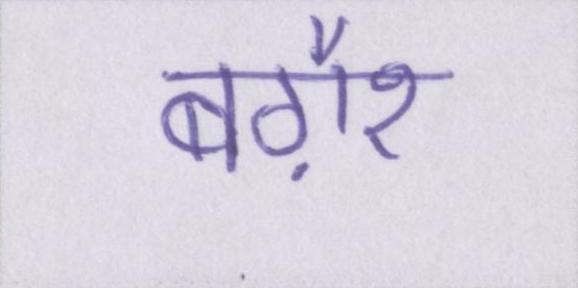 बग़ैर